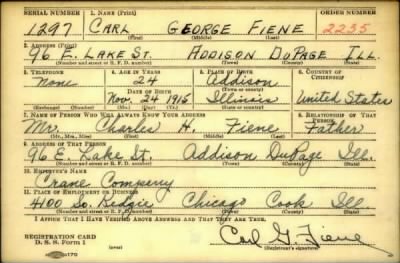 SERIAL NUMBER 1. NAME (Print) ORDER NUMBER
1297 CARL GEORGE FIENE 2235
(First) (Middle) (Last)
2. ADDRESS (Print)
96 E. LAKE ST. ADDISON DUPAGE ILL.
(Number and street or R. F. D. number) (Town) (County) (State)
3. TELEPHONE 4. AGE IN YEARS 5. PLACE OF BIRTH 6. COUNTRY OF CITIZENSHIP
None 24 Addison
DATE OF BIRTH (Town or county)
Nov. 24 1915 Illinois United States
(Exchange) (Number) (Mo.) (Day) (Yr.) (State or country)
7. NAME OF PERSON WHO WILL ALWAYS KNOW YOUR ADDRESS 8. RELATIONSHIP OF THAT PERSON
Mr. Charles H. Fiene Father
(Mr., Mrs., Miss) (First) (Middle) (Last)
9. ADDRESS OF THAT PERSON
96 E. Lake St. Addison DuPage Ill.
(Number and street or R. F. D. number) (Town) (County) (State)
10. EMPLOYER'S NAME
Crane Company
11. PLACE OF EMPLOYMENT OR BUSINESS
4100 So. Kedzie Chicago Cook Ill.
(Number and street or R. F. D. number) (Town) (County) (State)
I AFFIRM THAT I HAVE VERIFIED ABOVE ANSWERS AND THAT THEY ARE TRUE.
REGISTRATION CARD
D. S. S. Form 1 (over) Carl G. Fiene
(Registrant's signature)